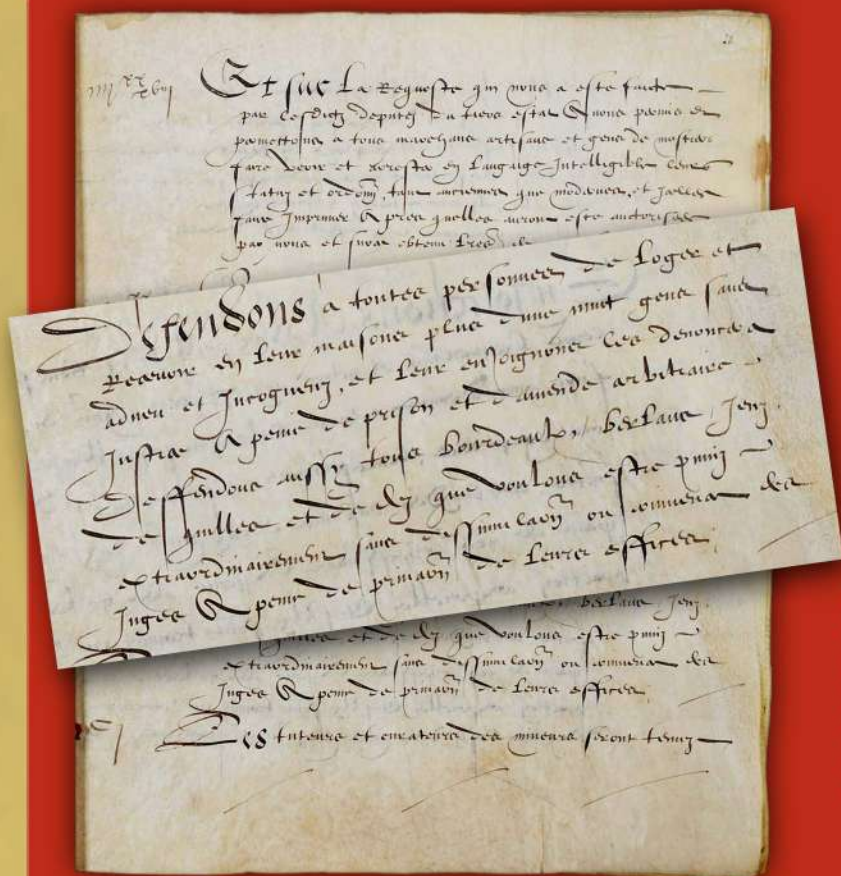 iiij xx xviij
Et sur La Requeste qui nous a este faicte
par lesdictz deputez du tiers estat Avons permis et
permettons a tous marchans artisans et gens de mestiers
faire veoir et arrester en Langaige Intelligible leurs
statuz et ordonn, tant anciennes que modernes, et Icelles
faire Imprimer Apres quelles auront este auctorisees
par nous et sur ce obtenu Lres de
Defendons a toutes personnes de Loger et
Recevoir en Leur maisons plus dune nuict gens sans
adveu et Incogneuz, et Leur enJoignons Les denoncer a
Justice A peine de prison et damende arbitraire
Deffendons aussy tous bourdeaulx, berlans, Jeuz
de quilles et de dez que voulons estre puniz
extraordinairement sans dissimulaon ou connivence des
Juges A peine de privaon de Leurs offices
berlans, Jeuz
quilles et de dez que voulons estre puniz
extraordinairement sans dissimulaon ou connivence des
Juges A peine de privaon de Leurs offices
Les tuteurs et curateurs des mineurs seront tenuz